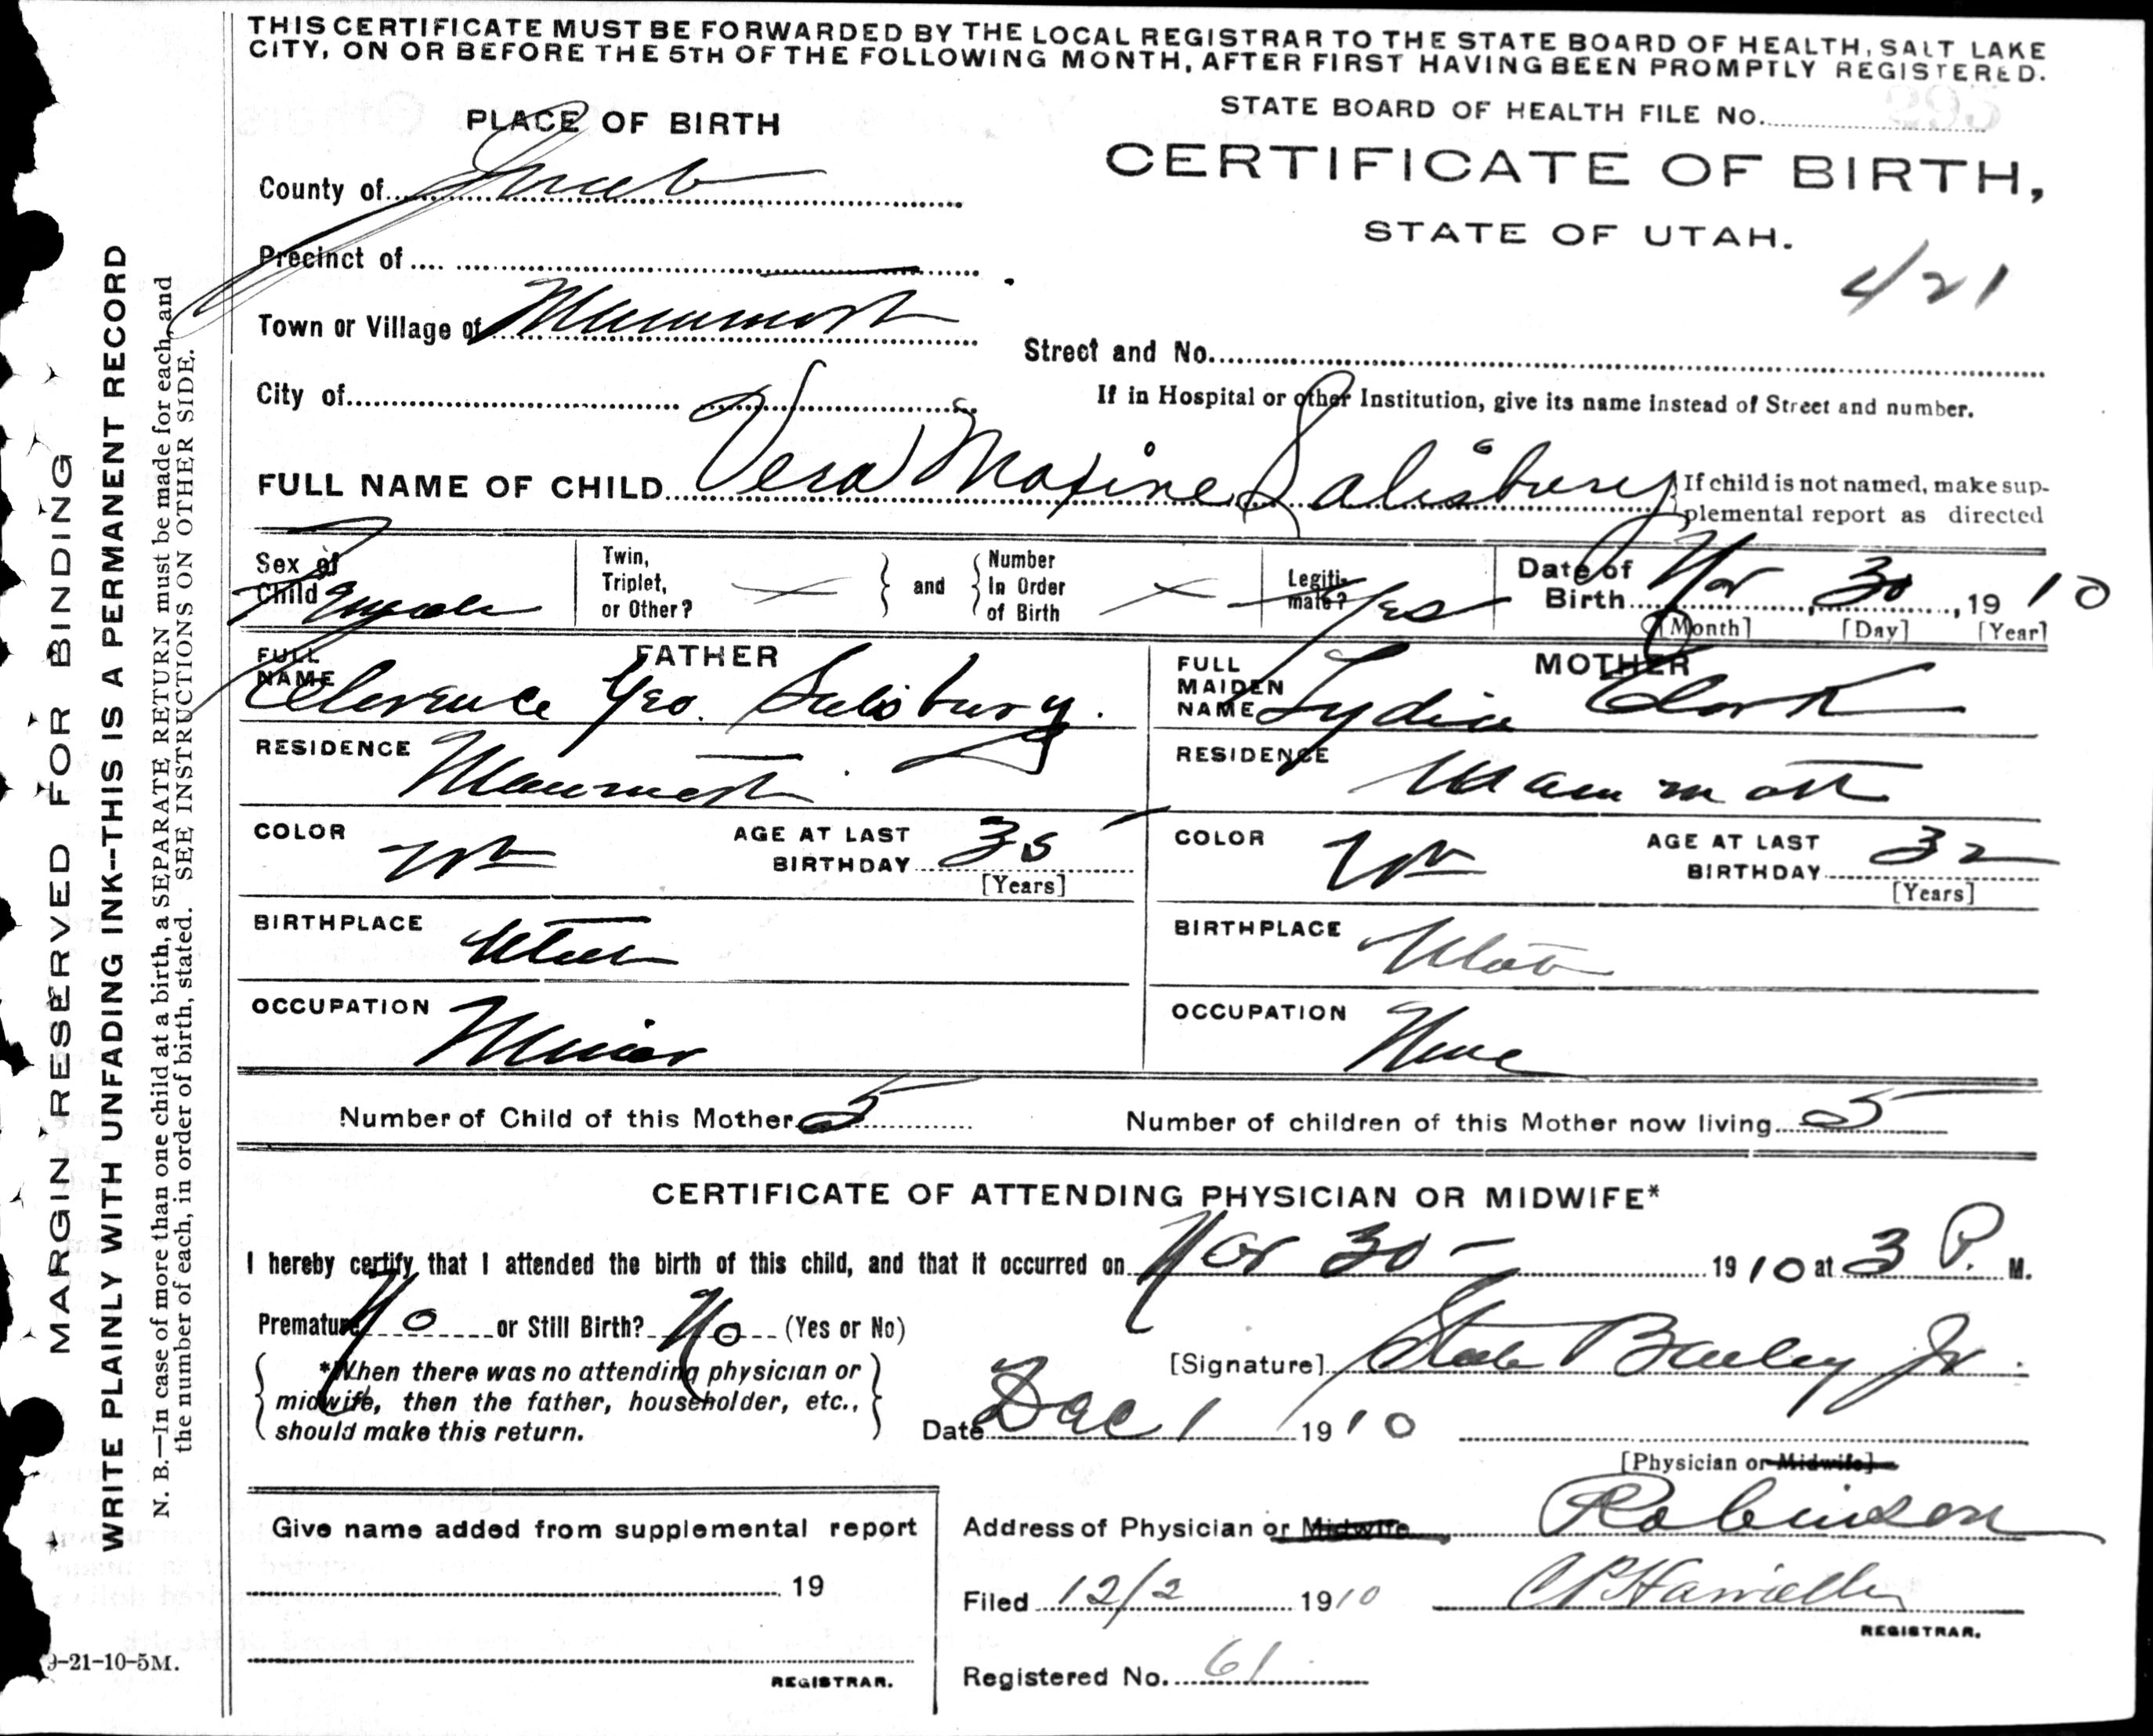 THIS CERTIFICATE MUST BE FORWARDED BY THE LOCAL REGISTRAR TO THE STATE BOARD OF HEALTH, SALT LAKE
CITY, ON OR BEFORE THE 5TH OF THE FOLLOWING MONTH, AFTER FIRST HAVING BEEN PROMPTLY REGISTERED.
PLACE OF BIRTH
STATE BOARD OF HEALTH FILE No.
CERTIFICATE OF BIRTH,
STATE OF UTAH.
421
County of Juab
Precinct of
Town or Village of Mammoth
Street and No.
City of
If in Hospital or other Institution, give its name instead of Street and number.
FULL NAME OF CHILD Vera Maxine Salisbury
If child is not named, make sup-
plemental report as directed
Sex of Child Female
Twin, Triplet, or Other?
and
Number In Order of Birth
Legiti- mate? Yes
Date of Birth Nov 30, 1910
[Month] [Day] [Year]
FATHER
FULL NAME Clarence Geo. Salisbury.
MOTHER
FULL MAIDEN NAME Lydia Clark
RESIDENCE Mammoth
RESIDENCE Mammoth
COLOR Wh AGE AT LAST BIRTHDAY 35 [Years]
COLOR Wh AGE AT LAST BIRTHDAY 32 [Years]
BIRTHPLACE Utah
BIRTHPLACE Utah
OCCUPATION Miner
OCCUPATION None
Number of Child of this Mother 5
Number of children of this Mother now living 5
CERTIFICATE OF ATTENDING PHYSICIAN OR MIDWIFE*
I hereby certify that I attended the birth of this child, and that it occurred on Nov 30 - 1910 at 3 P. M.
Premature No or Still Birth? No (Yes or No)
*When there was no attending physician or
midwife, then the father, householder, etc.,
should make this return.
[Signature] Steele Bailey Jr.
Date Dec 1 1910
[Physician or Midwife]
Give name added from supplemental report
19
REGISTRAR.
Address of Physician or Midwife Robinson
Filed 12/2 1910
REGISTRAR.
Registered No. 61
9-21-10-5M.
MARGIN RESERVED FOR BINDING
WRITE PLAINLY WITH UNFADING INK--THIS IS A PERMANENT RECORD
N. B.—In case of more than one child at a birth, a SEPARATE RETURN must be made for each, and
the number of each, in order of birth, stated. SEE INSTRUCTIONS ON OTHER SIDE.